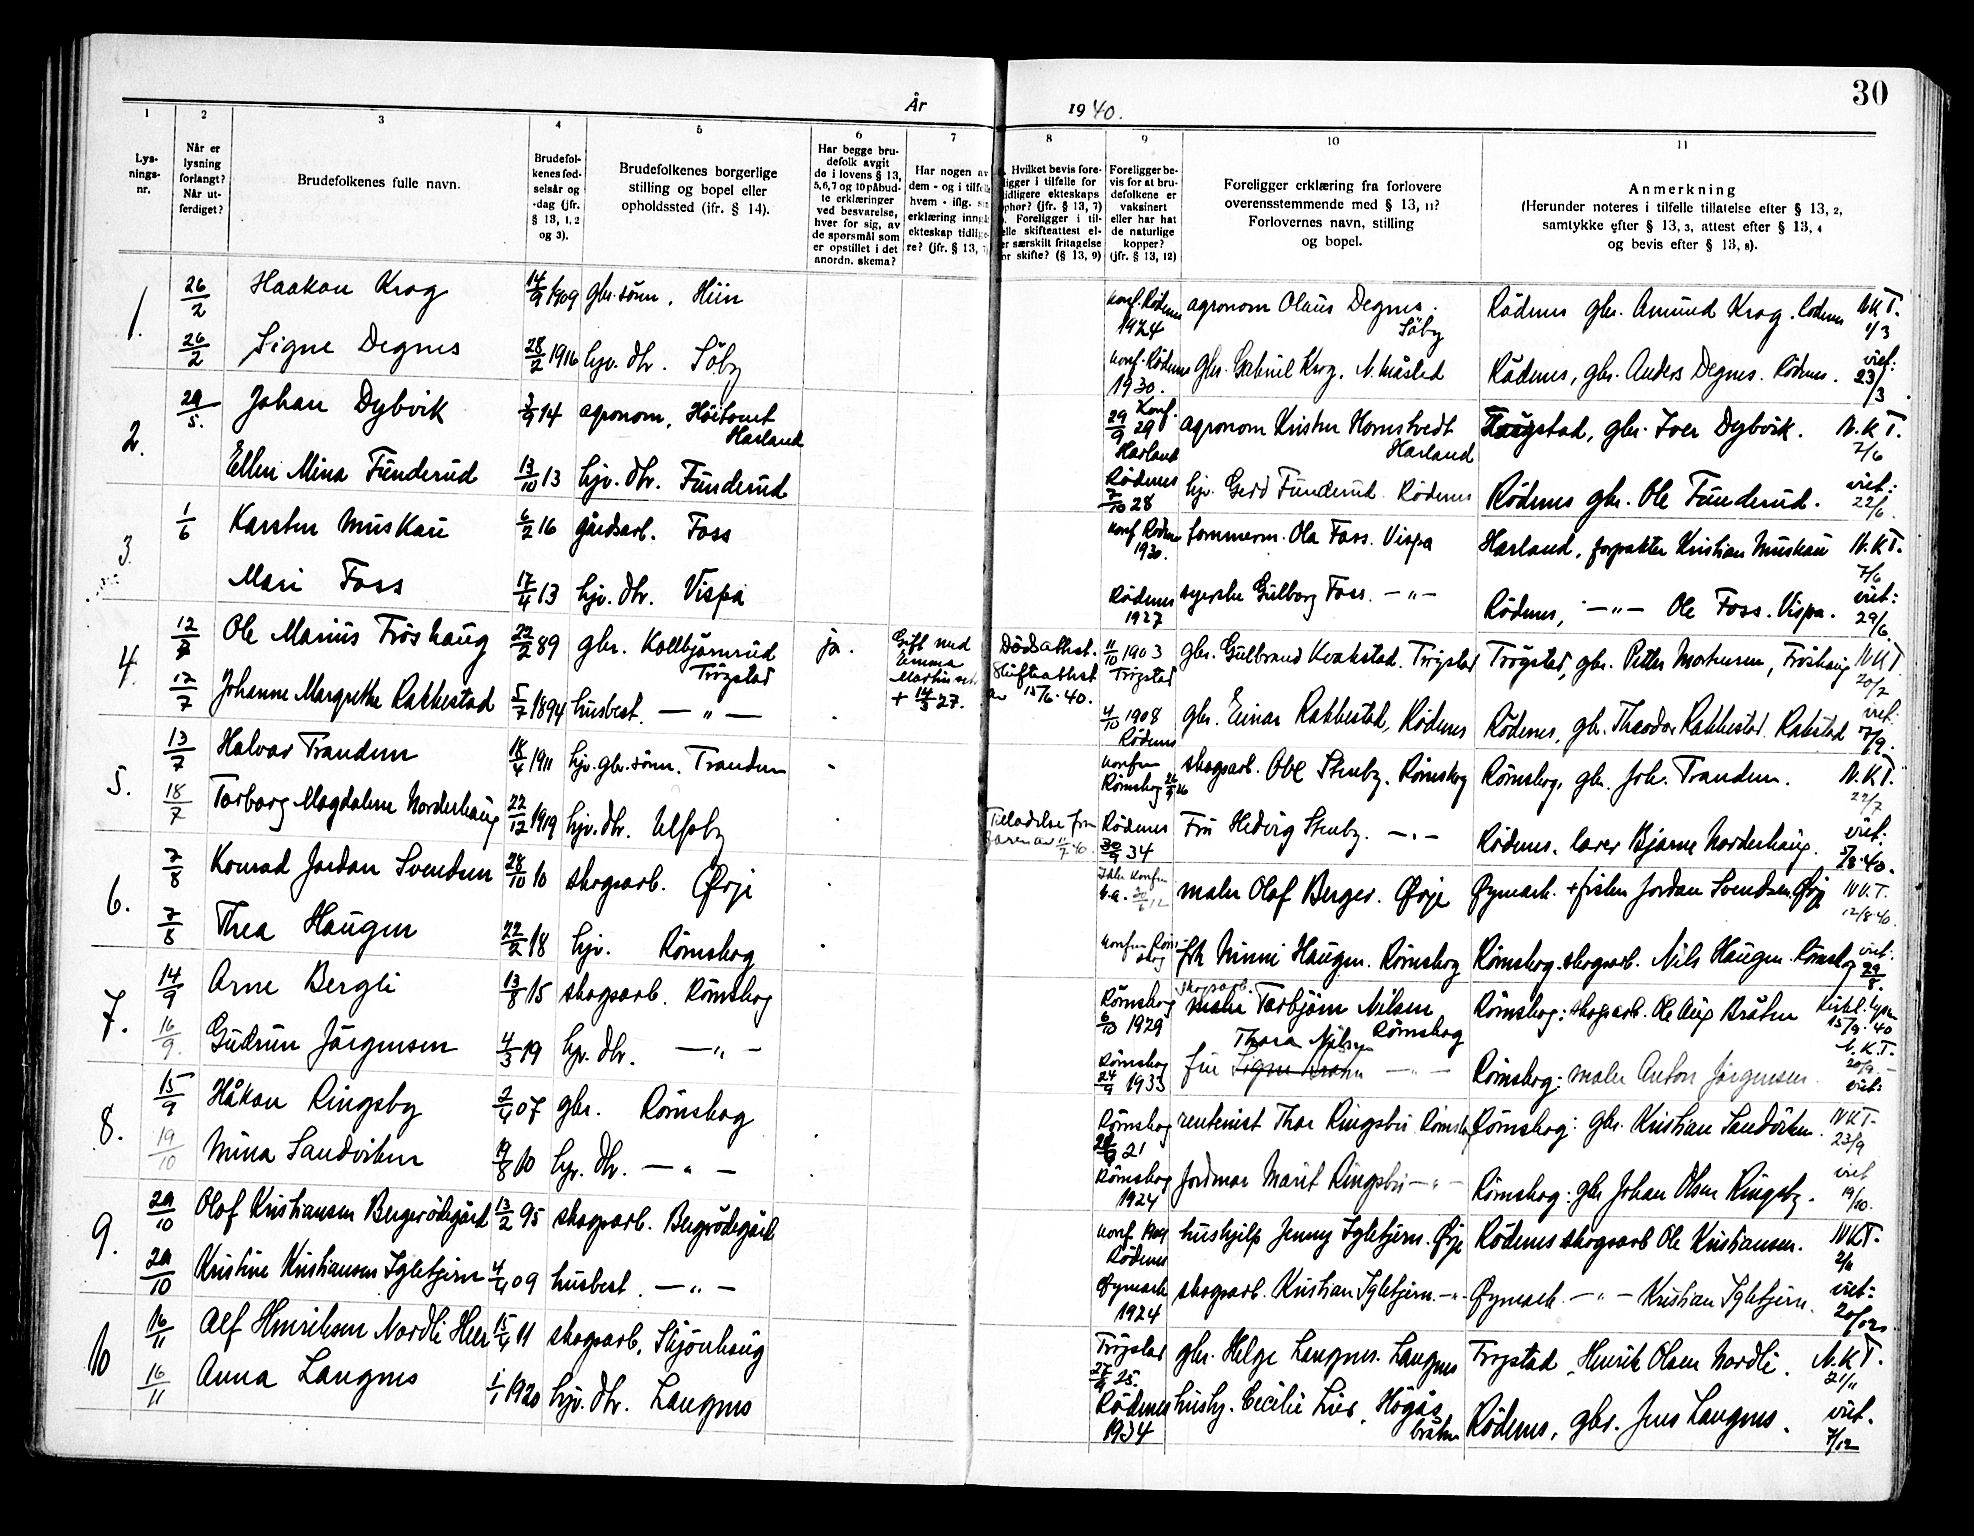 30
År 1940.
1 2 3 4 5 6 7 8 9 10 11
Lys-
nings-
nr.
Når er
lysning
forlangt?
Når ut-
ferdiget?
Brudefolkenes fulle navn.
Brudefol-
kenes fød-
selsår og
-dag (jfr.
§ 13, 1, 2
og 3).
Brudefolkenes borgerlige
stilling og bopel eller
opholdssted (jfr. § 14).
Har begge bru-
defolk avgit
de i lovens § 13,
5,6,7 og 10 påbud-
te erklæringer
ved besvarelse,
hver for sig, av
de spørsmål som
er opstillet i det
anordn. skema?
Har nogen av
dem - og i tilfelle
hvem - iflg.
erklæring inng
ekteskap tidlige-
re? (jfr. § 13,
Hvilket bevis fore-
ligger i tilfelle for
tidligere ekteskaps
ophør? (jfr. § 13, 7)
Foreligger i til-
felle skifteattest el-
ler særskilt fritagelse
for skifte? (§ 13, 9)
Foreligger be-
vis for at bru-
defolkene er
vaksinert
eller har hat
de naturlige
kopper?
(jfr. § 13, 12)
Foreligger erklæring fra forlovere
overensstemmende med § 13, 11?
Forlovernes navn, stilling
og bopel.
Anmerkning
(Herunder noteres i tilfelle tillatelse efter § 13, 2,
samtykke efter § 13, 3, attest efter § 13, 4
og bevis efter § 13, 8).
1. 26/2 Haakon Krog 14/9 1909 gbr.sønn, Hiin konf. Rödenes 1924 agronom Olaus Degnes. Söby Rödenes gbr. Amund Krog. Rödenes N.K.T. 1/3
26/2 Signe Degnes 28/2 1916 hjv. dtr. Söby konf. Rödenes 1930. gbr. Gabriel Krog, N. Måstad Rödenes, gbr. Anders Degnes. Rödenes. viet: 23/3
2. 29/5. Johan Dybvik 3/9 14 agronom, Höitomt Harland Konf. 29/9 29 Harland agronom Kristen Hornstvedt Harland stad, gbr. Iver Dybvik. N.K.T. 7/6
Ellen Mina Funderud 13/10 13 hjv. dtr. Funderud Rödenes 7/10 28 hjv. Gerd Funderud Rödenes Rödenes gbr. Ole Funderud. viet: 22/6.
3. 1/6 Karsten Muskau 6/2 16 gårdsarb. Foss konf Rödenes 1930. tømmerm. Ola Foss. Vispa Harland, forpakter Kristian Muskau N.K.T. 7/6
Mari Foss 17/4 13 hjv. dtr. Vispa Rödenes 1927 syerske Gulborg Foss. -"- Rödenes, -"- Ole Foss. Vispa. viet: 29/6.
4. 12/7 Ole Marius Fröshaug 22/2 89 gbr. Kollbjørnsrud Trögstad ja. Gift med Emma Martinsen + 14/3 27. Dödsattest. Skifteattest av 15/6-40. 11/10 1903 Trögstad gbr. Gulbrand Kvakstad. Trögstad Trögstad, gbr. Petter Mortensen, Fröshaug NKT 20/7
12/7 Johanne Margrethe Rakkestad 5/7 1894 husbest. -"- 4/10 1908 Rödenes gbr. Einar Rakkestad, Rödenes Rödenes, gb. Theodor Rakkestad. Rakstad viet: 7/9.
5. 13/7 Halvor Trandem 18/4 1911 hjv. gbr.sönn. Trandem konfm Römskog 26/9 26 skogsarb. Ole Stenby. Römskog Römskog, gbr. Joh. Trandem. N.K.T. 22/7
18/7 Torborg Magdalene Norderhaug 22/12 1919 hjv. dtr. Ulfsby Tilladelse fra faren av 11/7 40. Rödenes 30/9 34 Fru Hedvig Stenby. -"- Rödenes. lærer Bjarne Norderhaug. viet: 3/8-40.
6. 7/8 Konrad Jordan Svendsen 28/10 10 skogsarb. Ørje maler Olaf Berger. Ørje Øymark. + fisker Jordan Svendsen. Ørje N.K.T. 12/8-40.
7/8 Thea Haugen 22/2 18 hjv. Römskog Konfm Römskog frk Minni Haugen. Römskog Römskog. skogsarb. Nils Haugen. Römskog viet: 29/8.
7. 14/9 Arne Bergli 13/8 15 skogsarb. Römskog Römskog 6/10 1929 skogsarb. maler Torbjörn Nilsen Römskog Römskog: skogsarb. Ole Aug Bråten Kirkel. lysn 15/9-40 N.K.T. 20/9
16/9. Gudrun Jörgensen 4/3 19 hjv. dtr. -"- Römskog 24/9 1933 fru Thora Nilsen -"- Römskog: maler Anton Jörgensen. viet:
8. 15/9 Håkon Ringsby 2/4 07 gbr. Römskog Römskog 21 rentenist Thor Ringsbu Römskog Römskog: gbr. Kristian Sandviken. NKT. 23/9
19/10 Mina Sandviken 19/8 10 hjv. dtr. -"- Römskog 1924 jordmor Marit Ringsbu -"- Römskog: gbr Johan Olsen Ringsby. viet 19/10.
9. 29/10 Olaf Kristiansen Bergerödegård 13/2 95 skogsarb. Bergrödegård konf. 1909 Rödenes hushjelp Jenny Igletjern. Ørje Rödenes skogsarb Ole Kristiansen. NKT. 2/11
29/10 Kristine Kristiansen Igletjern 4/4 09 husbest. -"- Øymark 1924 skogsarb. Kristian Igletjern. -"- Øymark. -"- Kristian Igletjern. viet: 20/12
10 16/11 Alf Henriksen Nordli Heer 15/4 11 skogsarb. Skjönhaug Trögstad 27/9 25. gbr. Helge Langnes. Langnes Trögstad, Henrik Olsen Nordli. N.K.T. 21/11
16/11 Anna Langnes 1/1 1920 hjv. dtr. Langnes Rödenes 1934 hushj. Cecilie Lier, Högåsbråten Rödenes, gbr. Jens Langnes. viet. 7/12